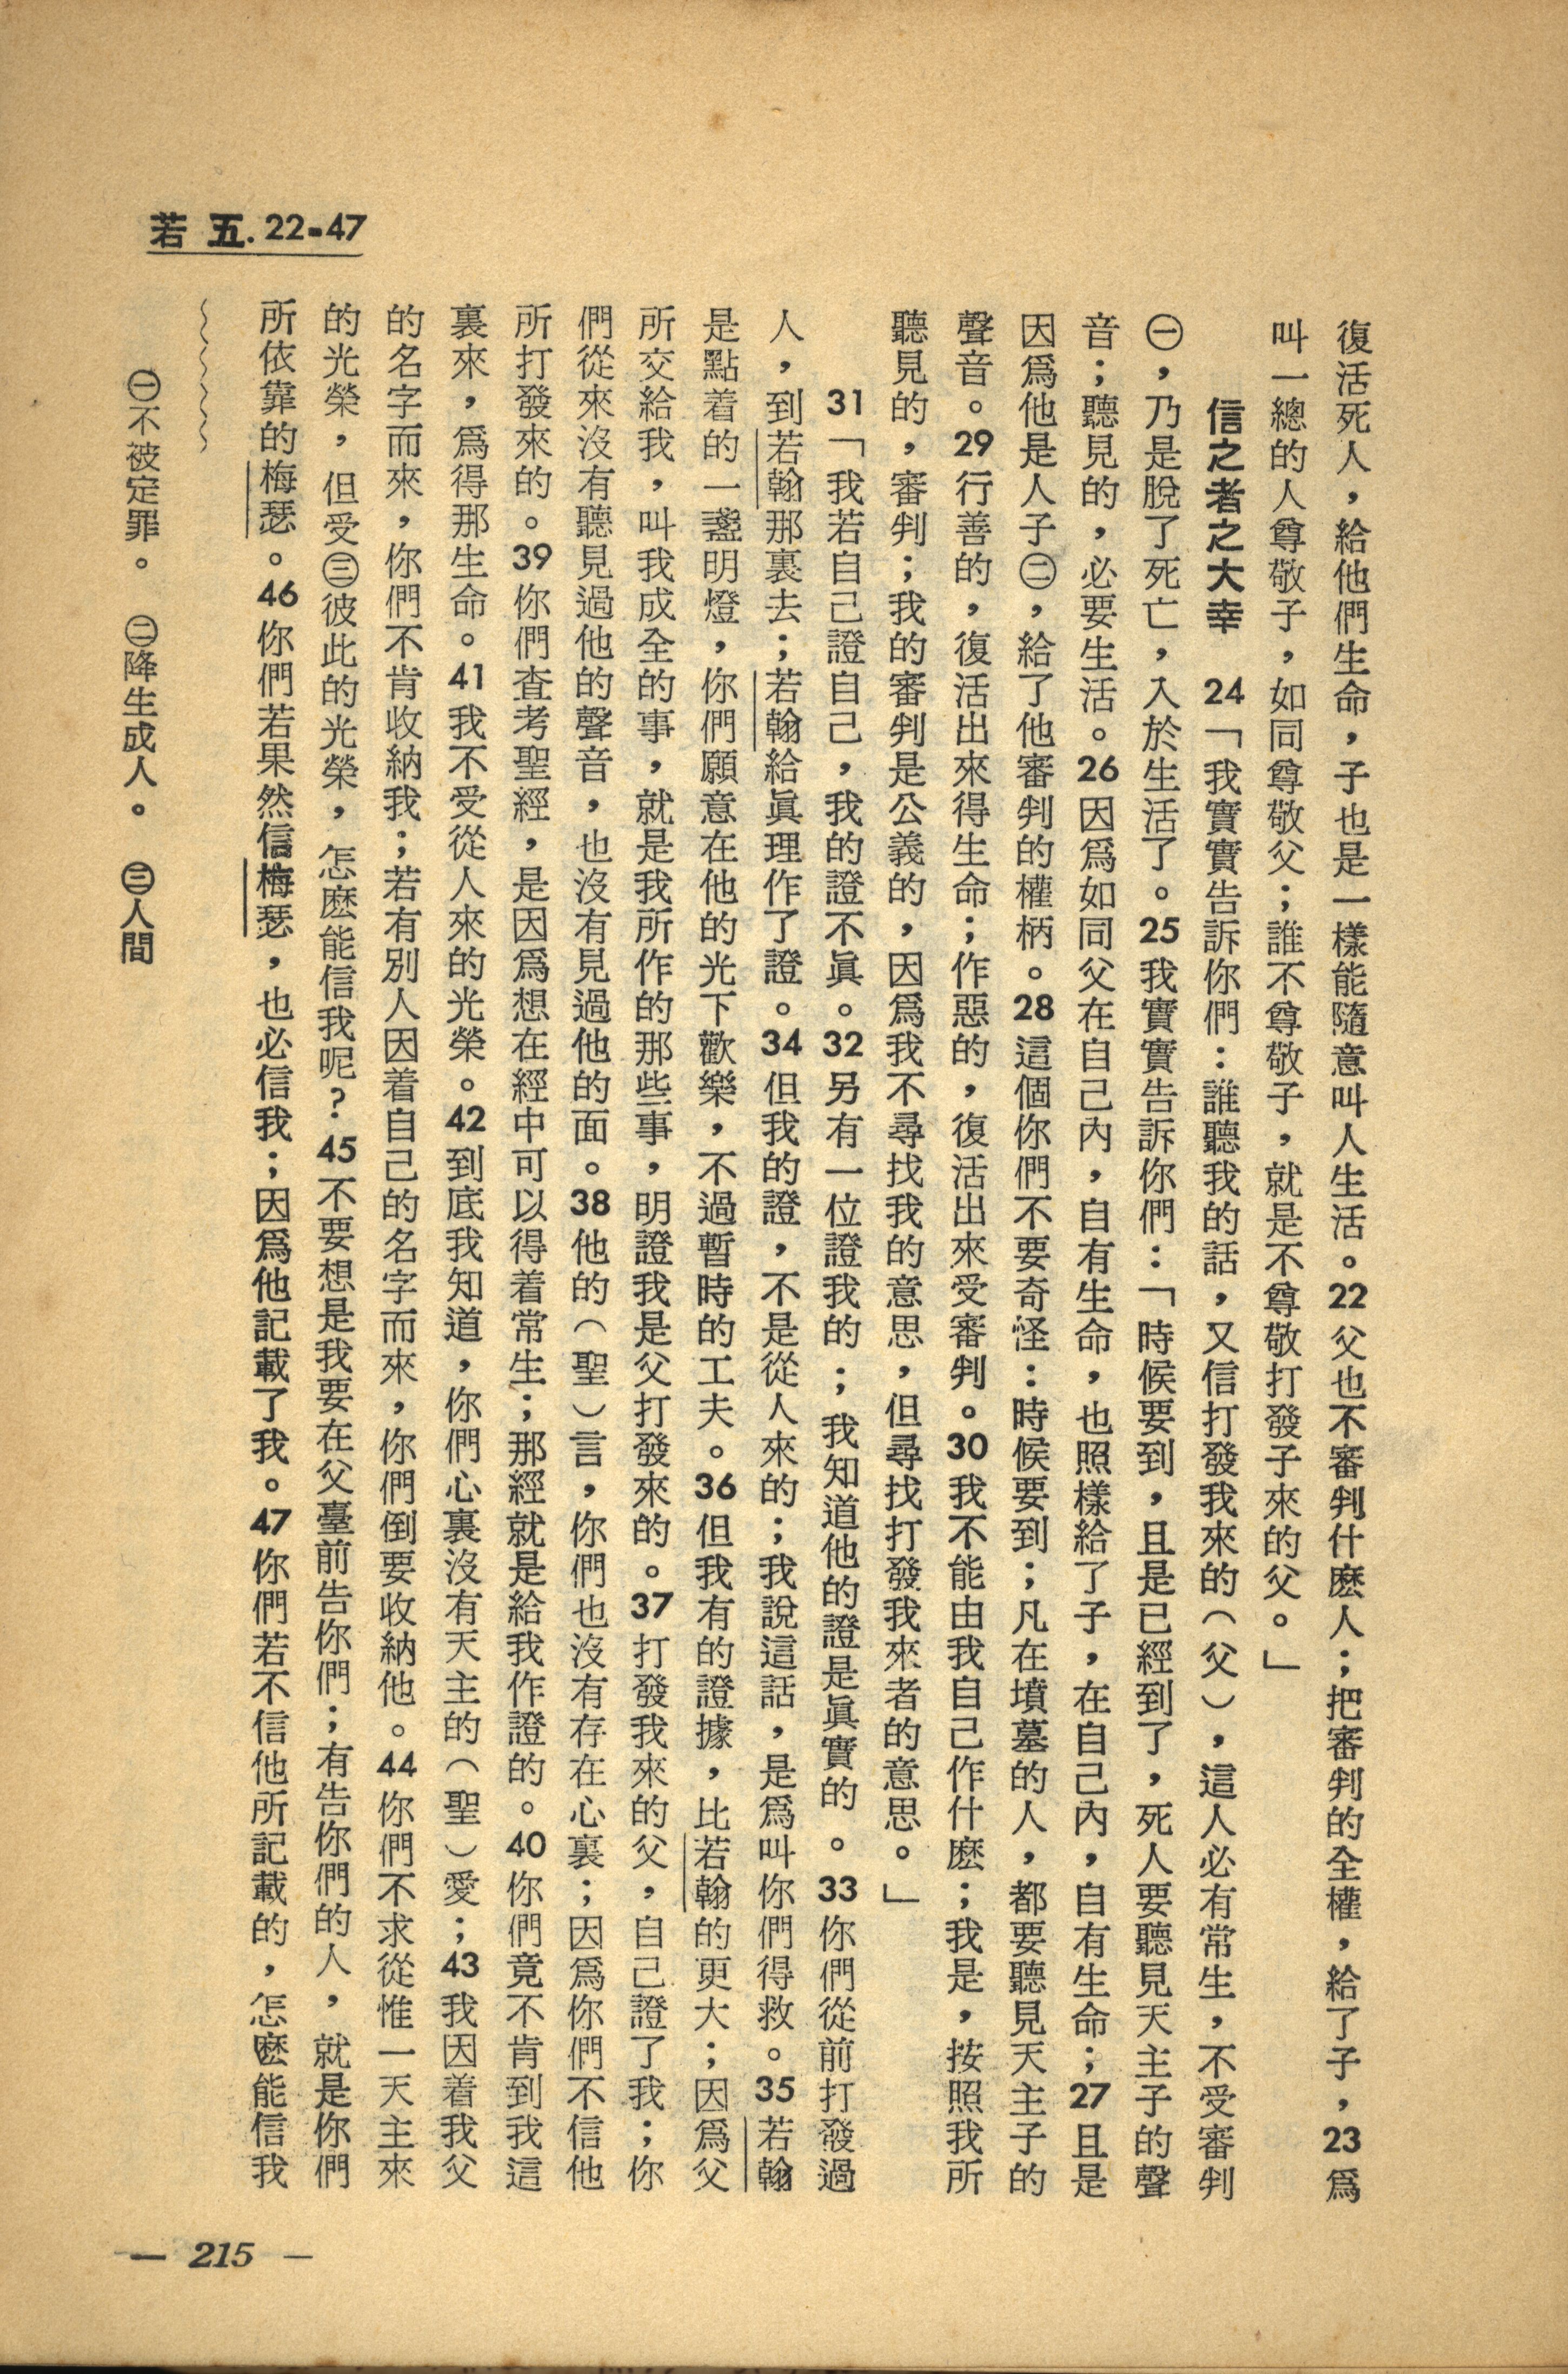 若 五. 22-47
復活死人，給他們生命，子也是一樣能隨意叫人生活。22父也不審判什麽人；把審判的全權，給了子，23爲
叫一總的人尊敬子，如同尊敬父；誰不尊敬子，就是不尊敬打發子來的父。」
信之者之大幸　24「我實實告訴你們：誰聽我的話，又信打發我來的（父），這人必有常生，不受審判
㊀，乃是脫了死亡，入於生活了。25我實實告訴你們：「時候要到，且是已經到了，死人要聽見天主子的聲
音；聽見的，必要生活。26因爲如同父在自己內，自有生命，也照樣給了子，在自己內，自有生命；27且是
因爲他是人子㊁，給了他審判的權柄。28這個你們不要奇怪：時候要到；凡在墳墓的人，都要聽見天主子的
聲音。29行善的，復活出來得生命；作惡的，復活出來受審判。30我不能由我自己作什麽；我是，按照我所
聽見的，審判；我的審判是公義的，因爲我不尋找我的意思，但尋找打發我來者的意思。」
31「我若自己證自己，我的證不眞。32另有一位證我的；我知道他的證是眞實的。33你們從前打發過
人，到若翰那裏去；若翰給眞理作了證。34但我的證，不是從人來的；我說這話，是爲叫你們得救。35若翰
是點着的一盞明燈，你們願意在他的光下歡樂，不過暫時的工夫。36但我有的證據，比若翰的更大；因爲父
所交給我，叫我成全的事，就是我所作的那些事，明證我是父打發來的。37打發我來的父，自己證了我；你
們從來沒有聽見過他的聲音，也沒有見過他的面。38他的（聖）言，你們也沒有存在心裏；因爲你們不信他
所打發來的。39你們查考聖經，是因爲想在經中可以得着常生；那經就是給我作證的。40你們竟不肯到我這
裏來，爲得那生命。41我不受從人來的光榮。42到底我知道，你們心裏沒有天主的（聖）愛；43我因着我父
的名字而來，你們不肯收納我；若有別人因着自己的名字而來，你們倒要收納他。44你們不求從惟一天主來
的光榮，但受㊂彼此的光榮，怎麽能信我呢？45不要想是我要在父臺前告你們；有告你們的人，就是你們
所依靠的梅瑟。46你們若果然信梅瑟，也必信我；因爲他記載了我。47你們若不信他所記載的，怎麽能信我
㊀不被定罪。　㊁降生成人。　㊂人間
— 215 —